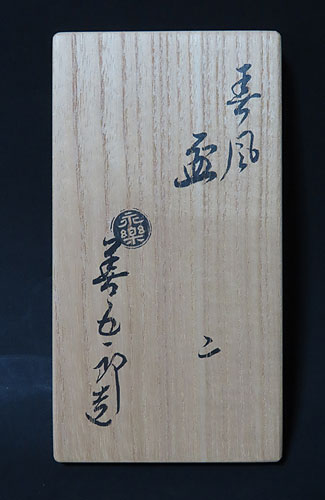 春風
盃
二
永樂
善五郎造